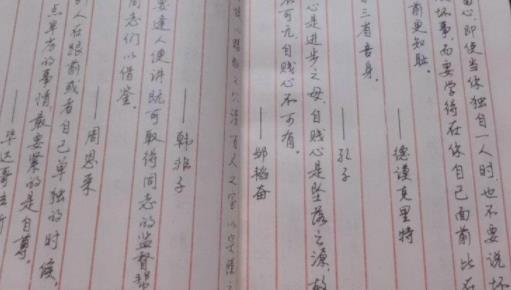 留心,即使当你独自一人时,也不要说坏
坏事,而要学得在你自己面前比在
前更知耻。
——德谟克里特
三省吾身。
——孔子
心是进步之母,自贱心是坠落之源,故
不可无,自贱心不可有。
——邹韬奋
逢人便讲既可取得同志的监督
同志们以借鉴。
——韩雅子
别人在跟前或者自己单独的时候,
点卑劣的事情最要紧的是自尊。
——周恩来
——毕达哥拉斯